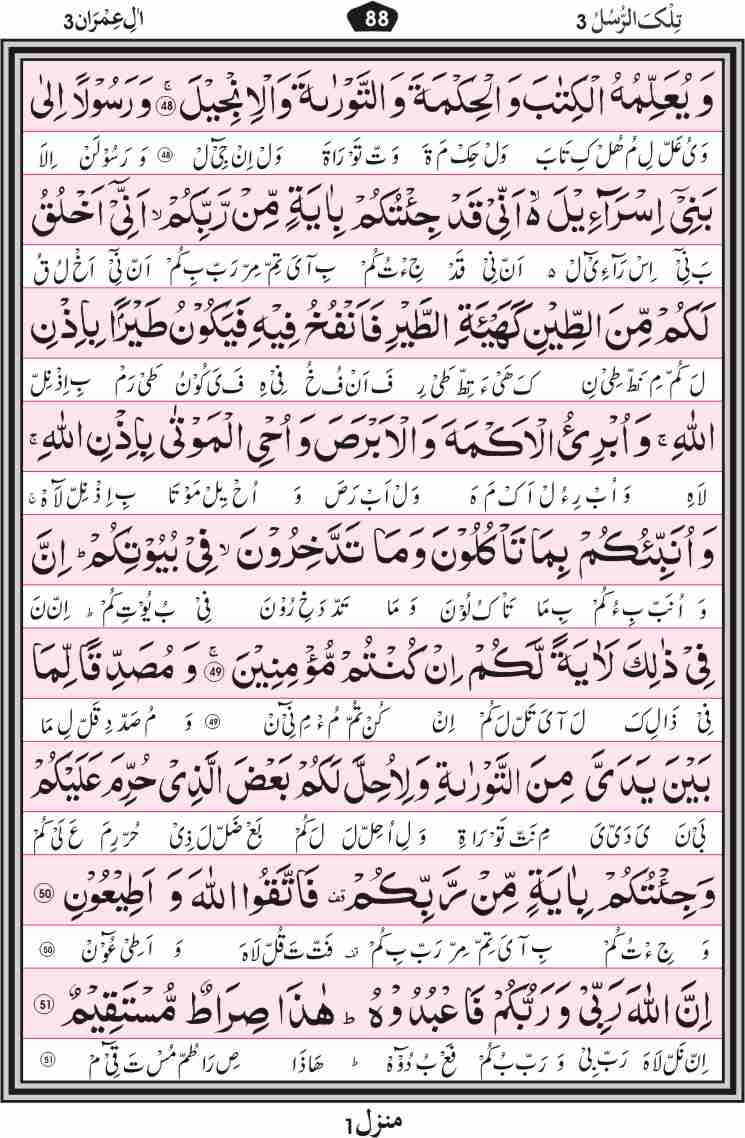 تِلْكَ الرُّسُلُ 3
88
اٰلِ عِمْرَان 3
وَ يُعَلِّمُهُ الْكِتٰبَ وَ الْحِكْمَةَ وَ التَّوْرٰىةَ وَ الْاِنْجِيْلَ ۚ ﴿48﴾ وَ رَسُوْلًا اِلٰى
وَ یُ عَلّ لِ مُ هُلْ كِ تَابَ وَلْ حِكْ مَ ةَ وَ تّ تَوْ رَاةَ وَلْ اِنْ جِیْ لَ ﴿48﴾ وَ رَ سُوْ لَنْ اِلَا
بَنِيْۤ اِسْرَآءِيْلَ ۙ۬ اَنِّيْ قَدْ جِئْتُكُمْ بِاٰيَةٍ مِّنْ رَّبِّكُمْ ۙ اَنِّيْۤ اَخْلُقُ
بَ نِیْۤ اِسْ رَآءِ یْ لَ ۙ اَنْ نِیْ قَدْ جِءْ تُ كُمْ بِ آ یَ تِمّ مِرّ رَبّ بِ كُمْ اَنْ نِیْۤ اَخْ لُ قُ
لَكُمْ مِّنَ الطِّيْنِ كَهَيْـَٔةِ الطَّيْرِ فَاَنْفُخُ فِيْهِ فَيَكُوْنُ طَيْرًۢا بِاِذْنِ
لَ كُمّ مِ نَطّ طِیْ نِ كَ هَیْ ءَ تِطّ طَیْ رِ فَ اَنْ فُ خُ فِیْ هِ فَ یَ كُوْنُ طَیْ رَمْ بِ اِذْ نِلّ
اللّٰهِ ۚ وَ اُبْرِئُ الْاَكْمَهَ وَ الْاَبْرَصَ وَ اُحْيِ الْمَوْتٰى بِاِذْنِ اللّٰهِ ۚ
لَاهِ وَ اُبْ رِ ءُ لْ اَكْ مَ هَ وَلْ اَبْ رَصَ وَ اُحْ یِلْ مَوْ تَا بِ اِذْ نِلّ لَاهِ ۚ
وَ اُنَبِّئُكُمْ بِمَا تَاْكُلُوْنَ وَ مَا تَدَّخِرُوْنَ ۙ فِيْ بُيُوْتِكُمْ ؕ اِنَّ
وَ اُنَبّ بِ ءُ كُمْ بِ مَا تَاْ كُ لُوْنَ وَ مَا تَدّ دَ خِ رُوْنَ فِیْ بُ یُوْ تِ كُمْ ؕ اِنّ نَ
فِيْ ذٰلِكَ لَاٰيَةً لَّكُمْ اِنْ كُنْتُمْ مُّؤْمِنِيْنَ ۚ ﴿49﴾ وَ مُصَدِّقًا لِّمَا
فِیْ ذَالِ كَ لَ آ یَ تَلّ لَ كُمْ اِنْ كُنْ تُمّ مُ ءْ مِ نِیْ نَ ﴿49﴾ وَ مُ صَدّ دِ قَلّ لِ مَا
بَيْنَ يَدَيَّ مِنَ التَّوْرٰىةِ وَ لِاُحِلَّ لَكُمْ بَعْضَ الَّذِيْ حُرِّمَ عَلَيْكُمْ
بَیْ نَ یَ دَیّ یَ مِ نَتّ تَوْ رَاةِ وَ لِ اُ حِلّ لَ لَ كُمْ بَعْ ضَلّ لَ ذِیْ حُرّ رِ مَ عَ لَیْ كُمْ
وَ جِئْتُكُمْ بِاٰيَةٍ مِّنْ رَّبِّكُمْ ۫ فَاتَّقُوا اللّٰهَ وَ اَطِيْعُوْنِ ﴿50﴾
وَ جِ ءْ تُ كُمْ بِ آ یَ تِمّ مِرّ رَبّ بِ كُمْ ۫ فَتّ تَ قُلّ لَاهَ وَ اَطِیْ عُوْنْ ﴿50﴾
اِنَّ اللّٰهَ رَبِّيْ وَ رَبُّكُمْ فَاعْبُدُوْهُ ؕ هٰذَا صِرَاطٌ مُّسْتَقِيْمٌ ﴿51﴾
اِنّ نَلّ لَاهَ رَبّ بِیْ وَ رَبّ بُ كُمْ فَعْ بُ دُوْهُ ؕ هَاذَا صِ رَاطُمّ مُسْ تَ قِیْ مْ ﴿51﴾
منزل 1